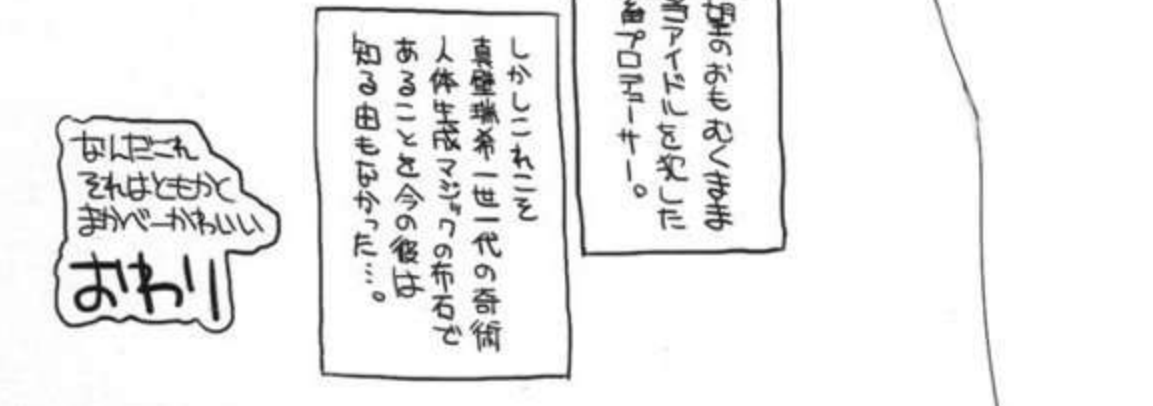 望のおもむくまま
アイドルを犯した
プロデューサー。
しかしこれこそ
真壁瑞希一世一代の奇術
人体生成マジックの布石で
あることを今の彼は
知る由もなかった…。
なんだこれ
それはともかく
まかべーかわいい
おわり